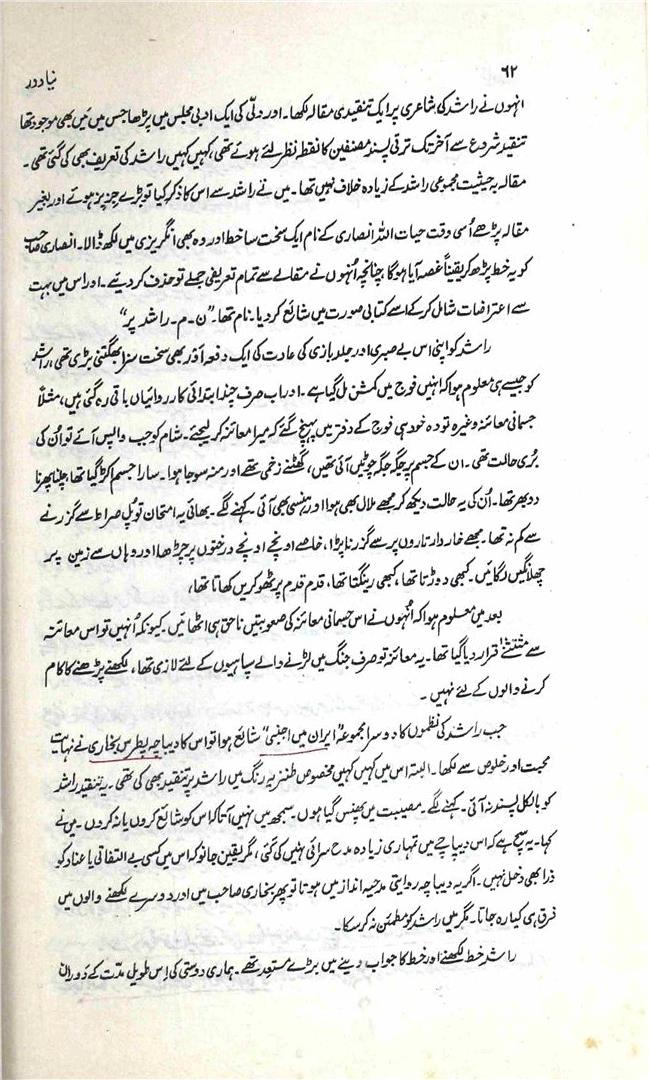 ۶۲
نیا دور
انہوں نے راشد کی شاعری پر ایک تنقیدی مقالہ لکھا۔ اور دلّی کی ایک ادبی مجلس میں پڑھا جس میں مَیں بھی موجود تھا
تنقید شروع سے آخر تک ترقی پسند مصنفین کا نقطۂ نظر لئے ہوئے تھی، کہیں کہیں راشد کی تعریف بھی کی گئی تھی۔
مقالہ بہ حیثیت مجموعی راشد کے زیادہ خلاف نہیں تھا۔ میں نے راشد سے اس کا ذکر کیا تو بڑے جزبز ہوئے اور بغیر
مقالہ پڑھے اُسی وقت حیات اللہ انصاری کے نام ایک سخت سا خط اور وہ بھی انگریزی میں لکھ ڈالا۔ انصاری صاحب
کو یہ خط پڑھ کر یقیناً غصہ آیا ہوگا چنانچہ اُنہوں نے مقالے سے تمام تعریفی جملے تو حذف کر دیئے۔ اور اس میں بہت
سے اعتراضات شامل کر کے اسے کتابی صورت میں شائع کر دیا۔ نام تھا۔ ”ن۔م۔ راشد پر“
راشد کو اپنی اس بے صبری اور جلد بازی کی عادت کی ایک دفعہ اَور بھی سخت سزا بھگتنی پڑی تھی، راشد
کو جیسے ہی معلوم ہوا کہ انہیں فوج میں کمشن مل گیا ہے۔ اور اب صرف چند ابتدائی کارروائیاں باقی رہ گئی ہیں، مثلاً
جسمانی معائنہ وغیرہ تو وہ خود ہی فوج کے دفتر میں پہنچ گئے کہ میرا معائنہ کر لیجئے۔ شام کو جب واپس آئے تو اُن کی
بُری حالت تھی۔ ان کے جسم پر جگہ جگہ چوٹیں آئی تھیں، گھٹنے زخمی تھے اور منہ سوجا ہوا۔ سارا جسم اکڑ گیا تھا، چلنا پھرنا
دوبھر تھا۔ اُن کی یہ حالت دیکھ کر مجھے ملال بھی ہوا اور ہنسی بھی آئی۔ کہنے لگے۔ بھائی یہ امتحان تو پل صراط سے گزرنے
سے کم نہ تھا۔ مجھے خاردار تاروں پر سے گزرنا پڑا، خاصے اونچے اونچے درختوں پر چڑھا اور وہاں سے زمین پر
چھلانگیں لگائیں۔ کبھی دوڑتا تھا، کبھی رینگتا تھا، قدم قدم پر ٹھوکریں کھاتا تھا،
بعد میں معلوم ہوا کہ اُنہوں نے اس جسمانی معائنہ کی صعوبتیں ناحق ہی اٹھائیں۔ کیونکہ اُنہیں تو اس معائنہ
سے مستثنیٰ قرار دیا گیا تھا۔ یہ معائنہ تو صرف جنگ میں لڑنے والے سپاہیوں کے لئے لازمی تھا، لکھنے پڑھنے کا کام
کرنے والوں کے لئے نہیں۔
جب راشد کی نظموں کا دوسرا مجموعہ ”ایران میں اجنبی“ شائع ہوا تو اس کا دیباچہ پطرس بخاری نے نہایت
محبت اور خلوص سے لکھا۔ البتہ اس میں کہیں کہیں مخصوص طنزیہ رنگ میں راشد پر تنقید بھی کی تھی۔ یہ تنقید راشد
کو بالکل پسند نہ آئی۔ کہنے لگے۔ مصیبت میں پھنس گیا ہوں۔ سمجھ میں نہیں آتا کہ اس کو شائع کروں یا نہ کروں۔ میں نے
کہا۔ یہ سچ ہے کہ اس دیباچے میں تمہاری زیادہ مدح سرائی نہیں کی گئی، مگر یقین جانو کہ اس میں کسی بے التفاتی یا عناد کو
ذرا بھی دخل نہیں۔ اگر یہ دیباچہ روایتی مدحیہ انداز میں ہوتا تو پھر بخاری صاحب میں اور دوسرے لکھنے والوں میں
فرق ہی کیا رہ جاتا۔ مگر میں راشد کو مطمئن نہ کر سکا۔
راشد خط لکھنے اور خط کا جواب دینے میں بڑے مستعد تھے۔ ہماری دوستی کی اِس طویل مدّت کے دَوران